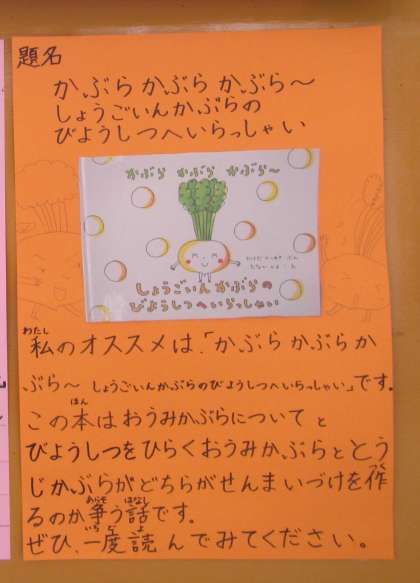 題名
かぶら かぶら かぶら〜
しょうごいんかぶらの
びようしつへいらっしゃい
かぶら かぶら かぶら〜
しょうごいんかぶらの
びようしつへいらっしゃい
わたし
私のオススメは、「かぶらかぶらか
ぶら〜 しょうごいんかぶらのびようしつへいらっしゃい」です。
ほん
この本はおうみかぶらについてと
びようしつをひらくおうみかぶらととう
じかぶらがどちらがせんまいづけを作
つく
るのか争う話です。
あらそ はなし
ぜひ、一度読んでみてください。
いちど よ